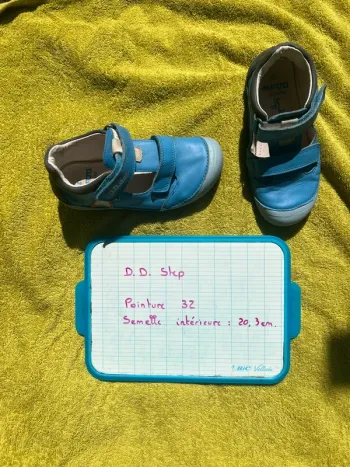 D.D. Step
Pointure 32
Semelle intérieure : 20,3 cm.